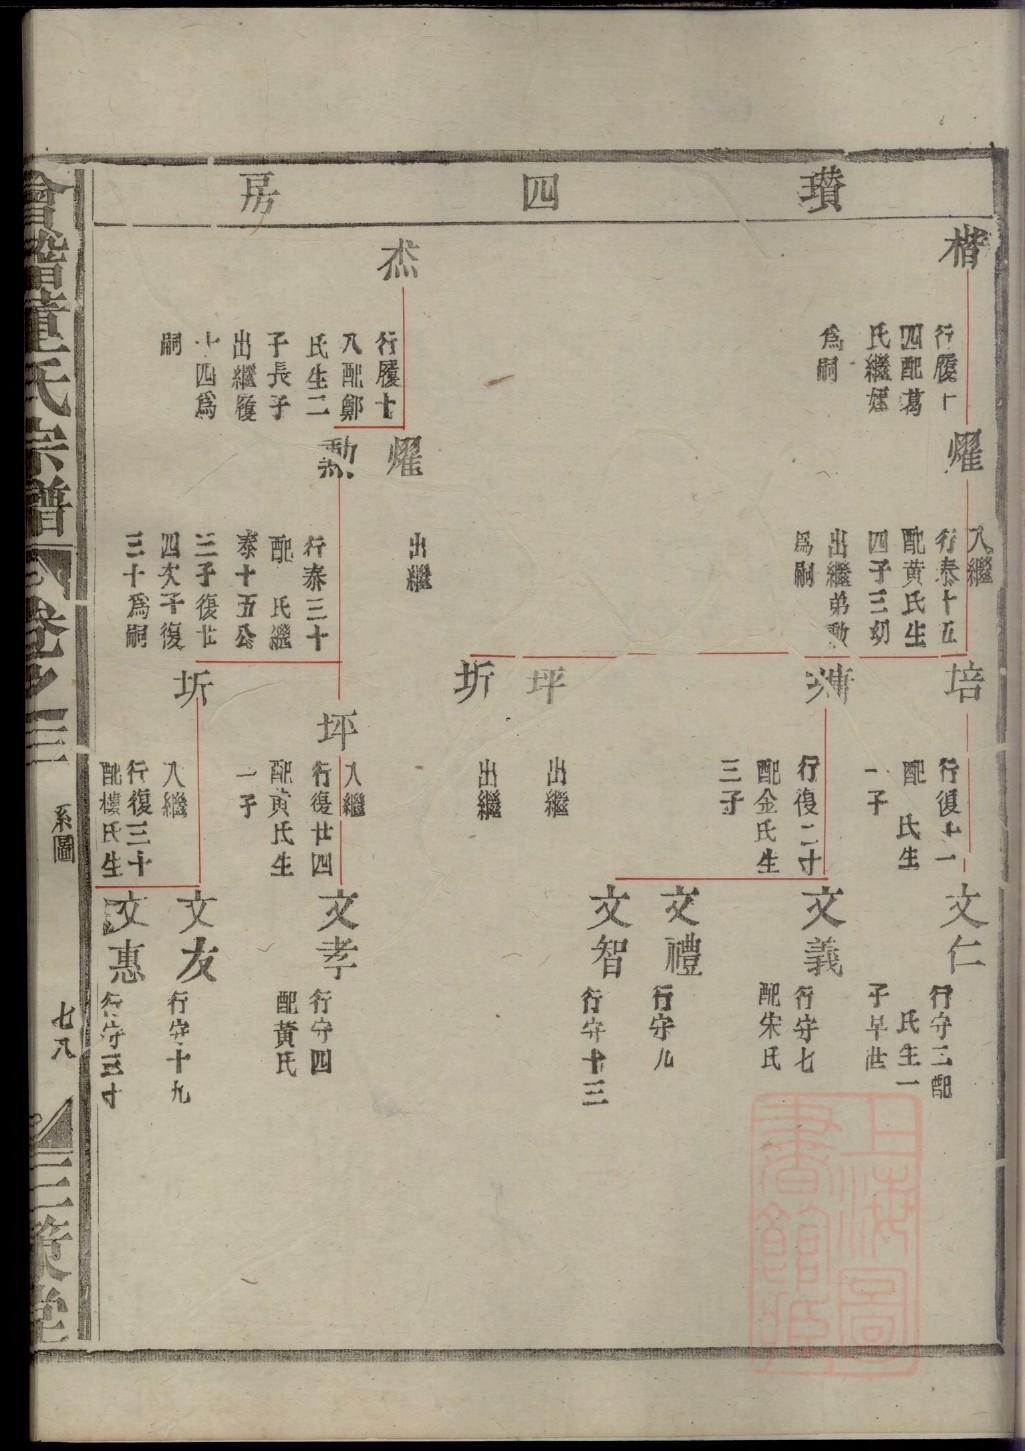 瓚四房
楷
行履十
四配葛
氏繼姪
爲嗣
杰
行履十
入配鄭
氏生二
子長子
出繼履
十四爲
嗣
燿
入繼
行泰十五
配黄氏生
四子三幼
出繼弟勳
爲嗣
燿
出繼
勳
行泰三十
配 氏繼
泰十五公
三子復廿
四次子復
三十爲嗣
培
行復十一
配 氏生
一子
行復二十
配金氏生
三子
坪
出繼
圻
出繼
坪
入繼
行復廿四
配黄氏生
一子
圻
入繼
行復三十
配樓氏生
文仁
行守二配
氏生一
子早世
文義
行守七
配朱氏
文禮
行守九
文智
行守十三
文孝
行守四
配黄氏
文友
行守十九
文惠
行守三十
會稽童氏宗譜
卷之三
系圖
七八
三策堂
上海圖
書館藏